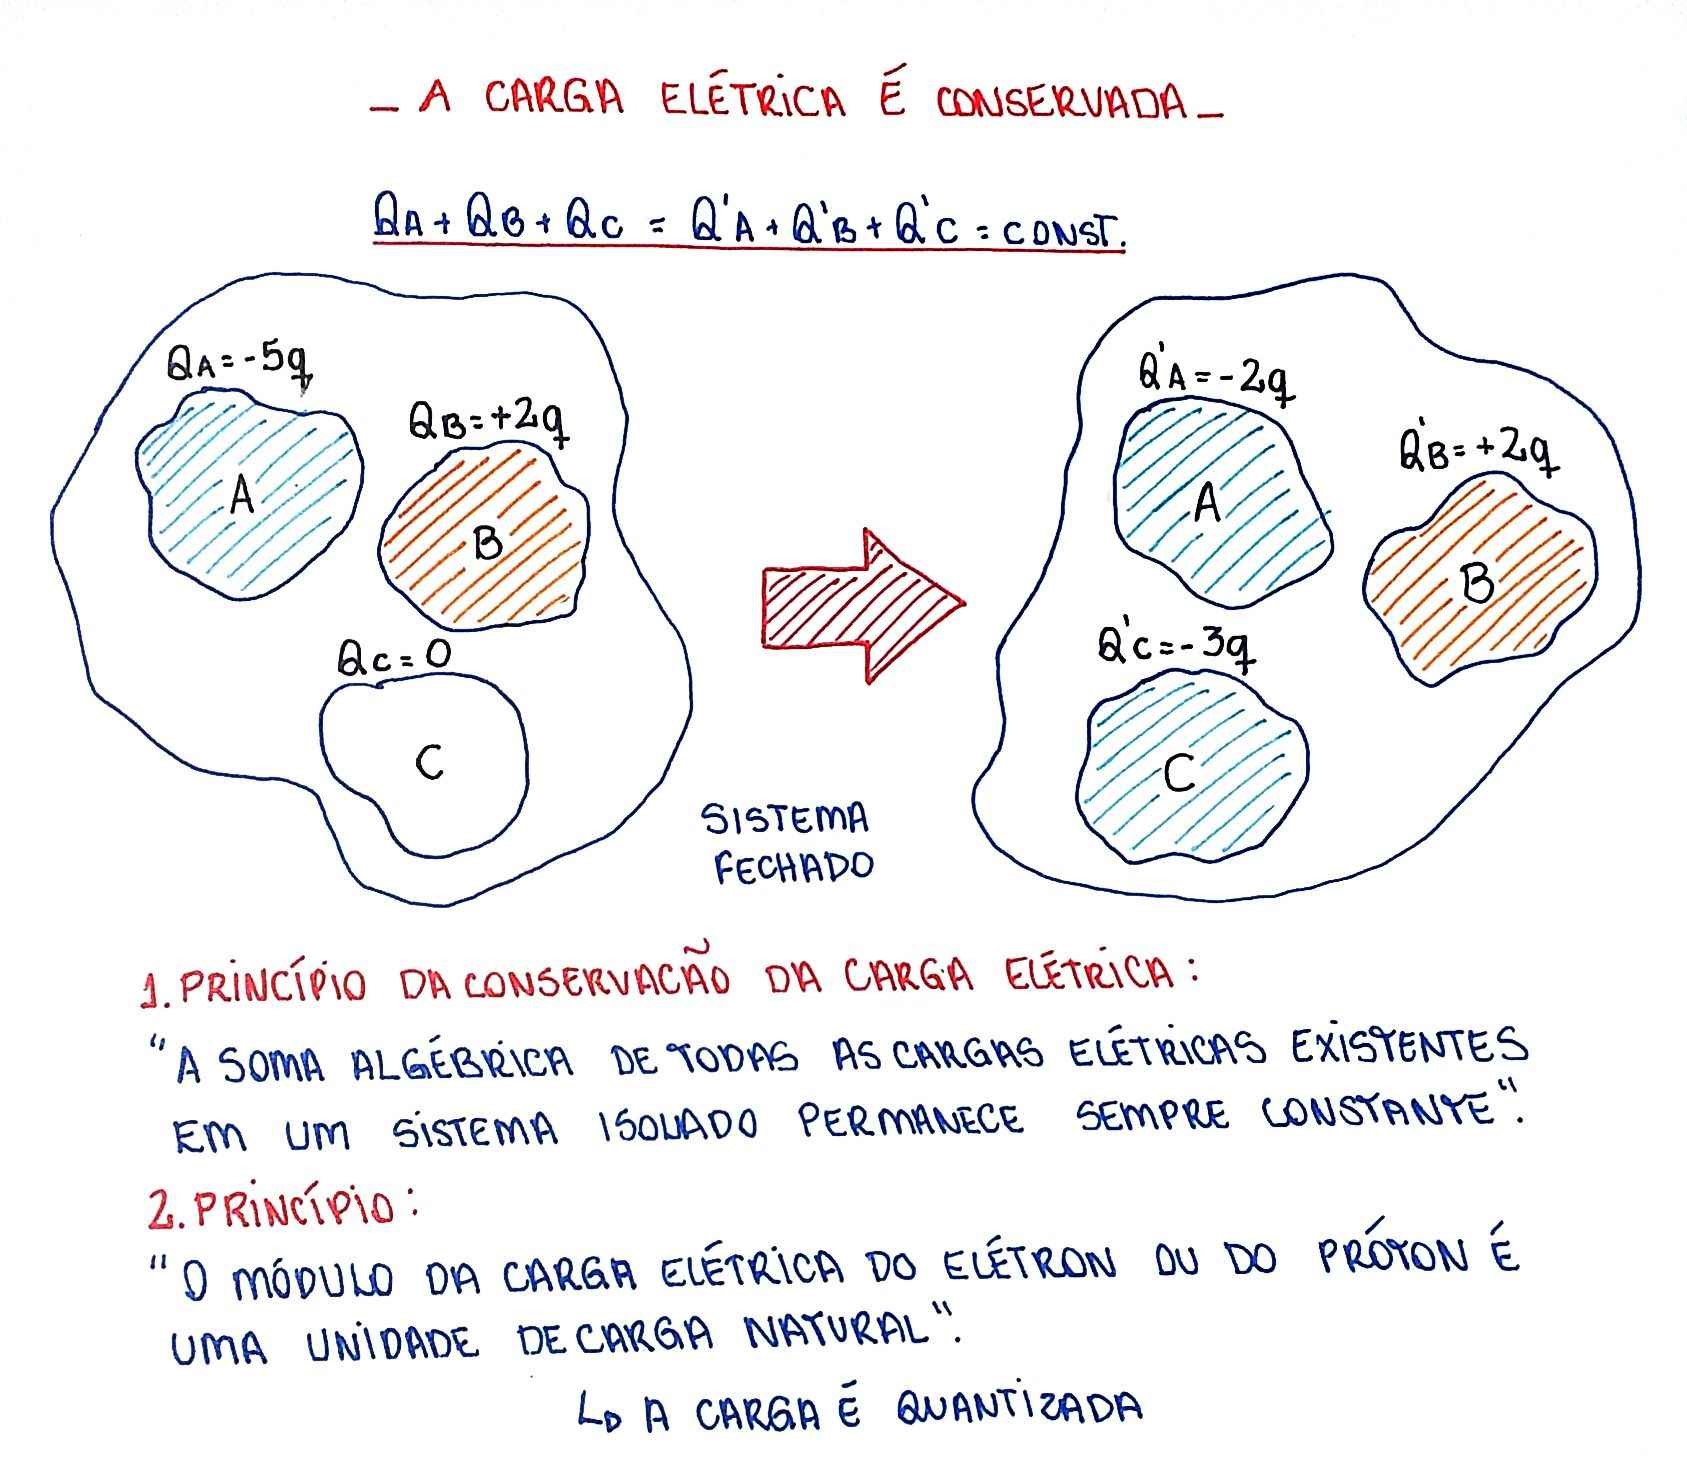 - A CARGA ELÉTRICA É CONSERVADA -
QA + QB + QC = Q'A + Q'B + Q'C = CONST.
QA = -5q
QB = +2q
A
B
QC = 0
C
Q'A = -2q
Q'B = +2q
A
B
Q'C = -3q
C
SISTEMA
FECHADO
1. PRINCÍPIO DA CONSERVACÃO DA CARGA ELÉTRICA:
"A SOMA ALGÉBRICA DE TODAS AS CARGAS ELÉTRICAS EXISTENTES
EM UM SISTEMA ISOLADO PERMANECE SEMPRE CONSTANTE".
2. PRINCÍPIO:
"O MÓDULO DA CARGA ELÉTRICA DO ELÉTRON OU DO PRÓTON É
UMA UNIDADE DE CARGA NATURAL".
↳ A CARGA É QUANTIZADA